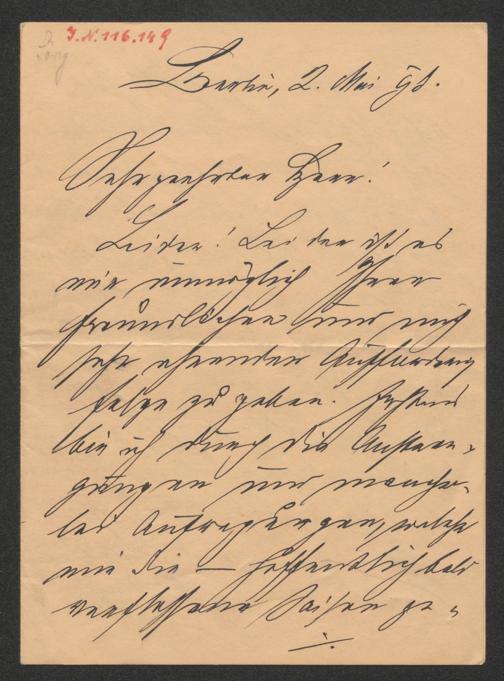 J.N. 116.149
Berlin, 2. Mai 98.
Sehr geehrter Herr!
Leider! Leider ist es
mir unmöglich Ihrer
freundlichen und mich
sehr ehrenden Aufforderung
Folge zu geben. Erstens
bin ich durch die Anstren-
gungen und mancher-
lei Aufregungen, welche
mir die — hoffentlich bald
verflossene Saison ge-
./.